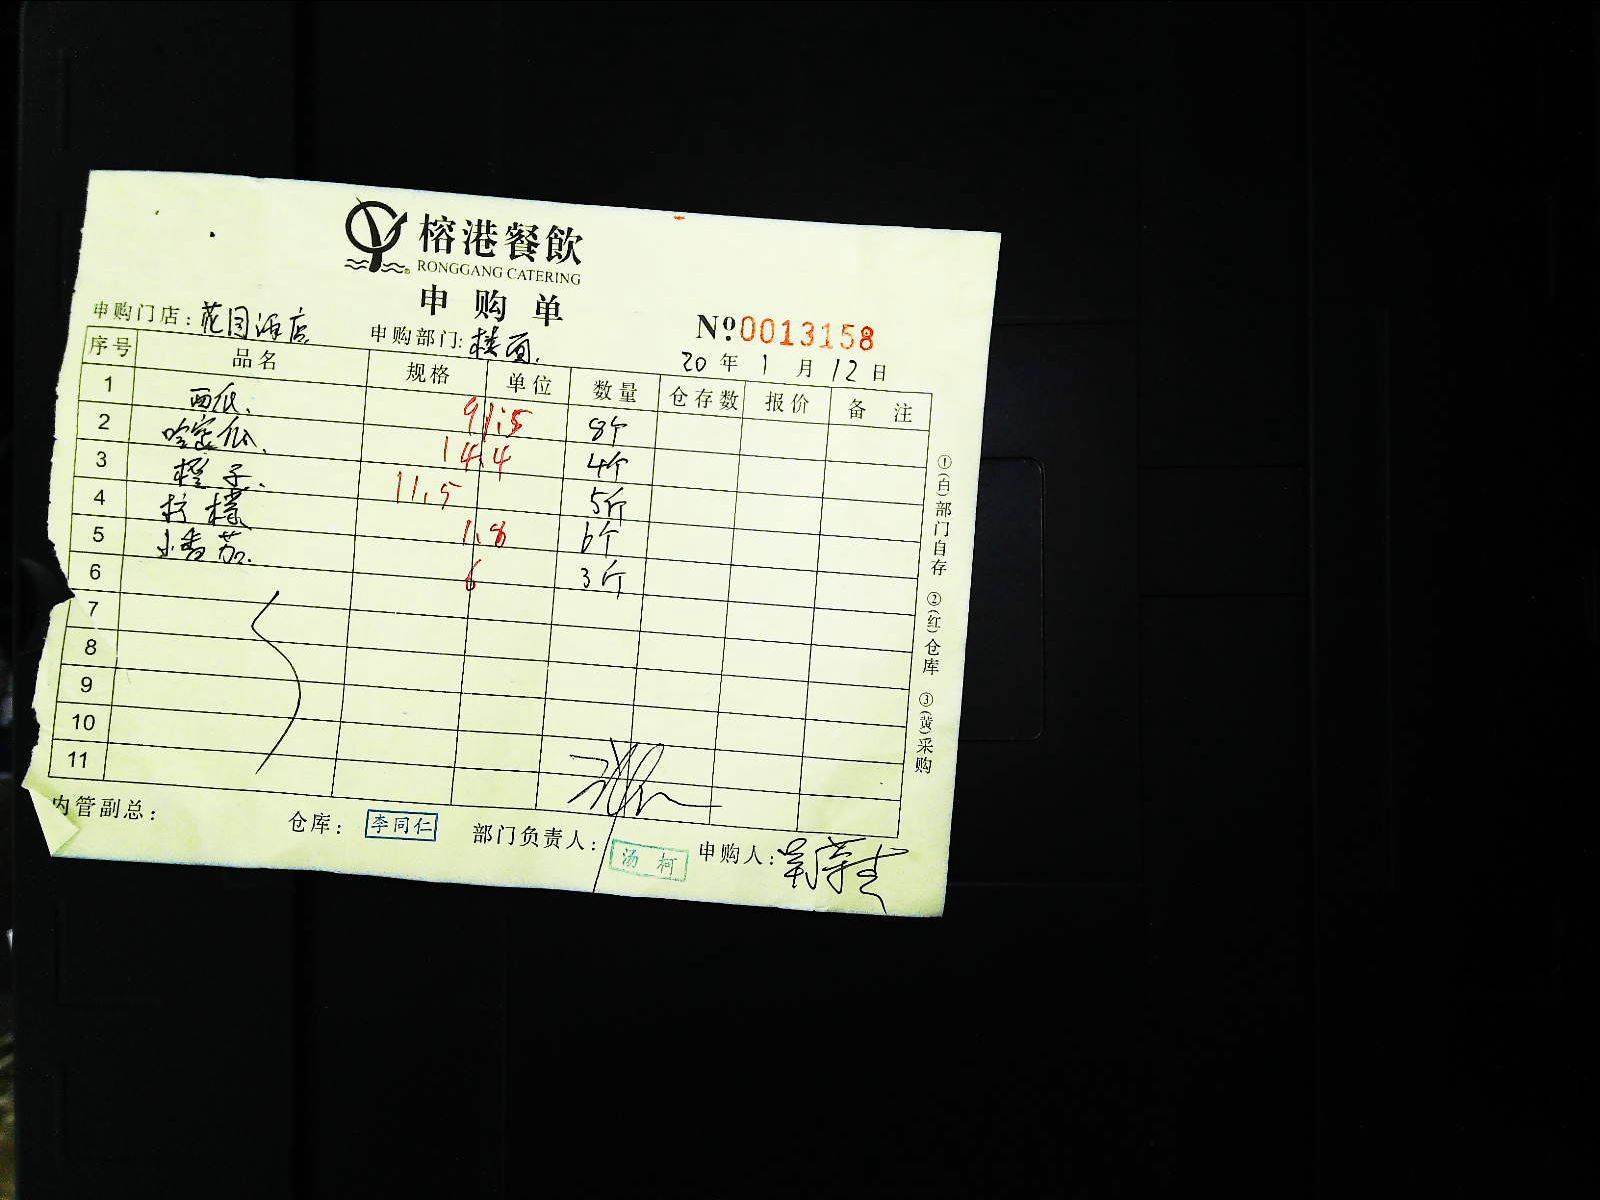 榕港餐飲
RONGGANG CATERING
申购单
申购门店: 花园酒店 申购部门: 楼面 №0013158
20 年 1 月 12 日
序号 品名 规格 单位 数量 仓存数 报价 备注
1 西瓜 91.5 8个
2 哈密瓜 14.4 4个
3 橙子 11.5 5斤
4 柠檬 1.8 6个
5 小番茄 6 3斤
6
7
8
9
10
11
内管副总: 仓库: 李同仁 部门负责人: 汤柯 申购人:
①(白)部门自存 ②(红)仓库 ③(黄)采购